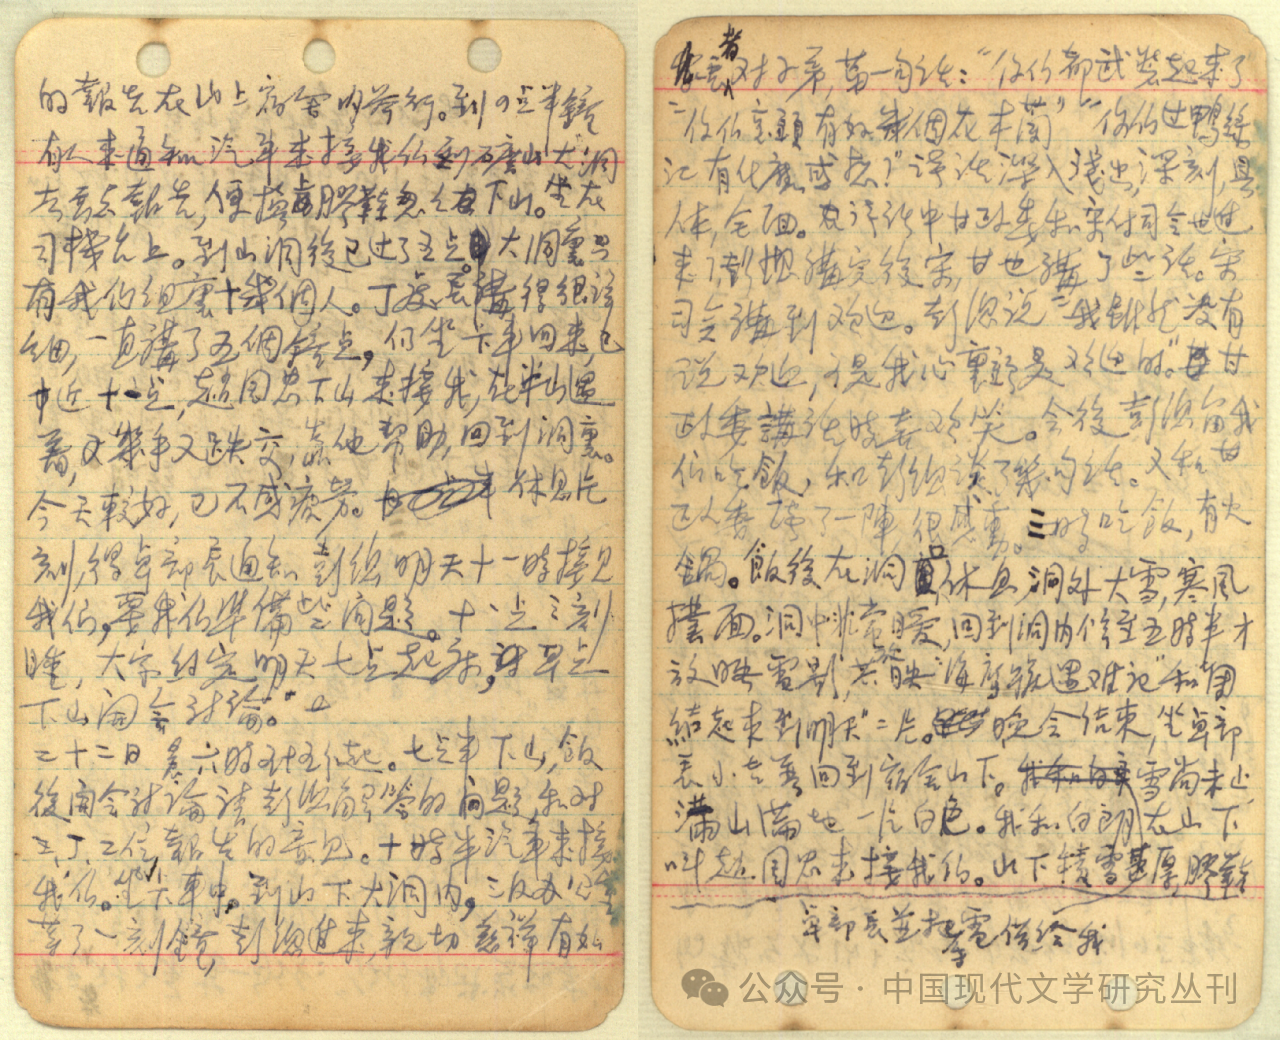 的報告在山上宿舍內舉行。到9点半鐘
有人来通知汽車来接我们到矿山大洞
去丟点報告,便揸膠鞋忽々下山。坐在
司機台上。到山洞後已过了五点。大洞裏只
有我们组裏十幾個人。丁处長講得很詳
细,一直講了五個鐘点,仍坐卡車回来,已
近十一点,趙国忠下山来接我,在半山遇
着,又幾乎又跌交,靠他幫助,回到洞裏。
今天較好,已不感疲勞。休息片
刻,得卓部長通知彭總明天十一時接見
我们。要我们準備些问題。十一点三刻
睡,大家约定明天七点起身,早点
下山開会討論。
二十二日 晨六時五十五们起。七点半下山,飯
後開会討論請彭總解答的问題,和对
三、丁、二位報告的意见。十時半汽車来接
我们。坐卡車中。到山下大洞内,
等了一刻鐘,彭總进来,親切慈祥有如
家長者对子弟,第一句话:“你们都武裝起来了
“你们裏頭有好幾個花木蘭”“你们过鸭绿
江有什麼感想?”談话深入淺出,深刻,具
体,全面。在談话中甘政委和宋付司令也进
来了,彭總講完後宋,甘也講了些话。宋
司令講到欢迎。彭總说“我雖然没有
说欢迎,可是我心裏頭是欢迎的。”甘
政委講话時喜欢笑。会後彭總留我
们吃飯,和彭總談了幾句话。又和甘
政委談了一陣,很感動。三時吃飯,有火
鍋。飯後在洞口休息,洞外大雪,寒風
撲面。洞中非常暖,回到洞内候至五時半才
放映電影,共放映“海鹰號遇难记”和“團
結起来到明天”二片。晚会结束,坐卓部
長小吉普回到宿舍山下。雪尚未止,
滿山滿地一片白色。我和白朗在山下
叫趙国忠来接我们。山下積雪甚厚,膠鞋
卓部長並把電筒借给我
公众号·中国现代文学研究丛刊